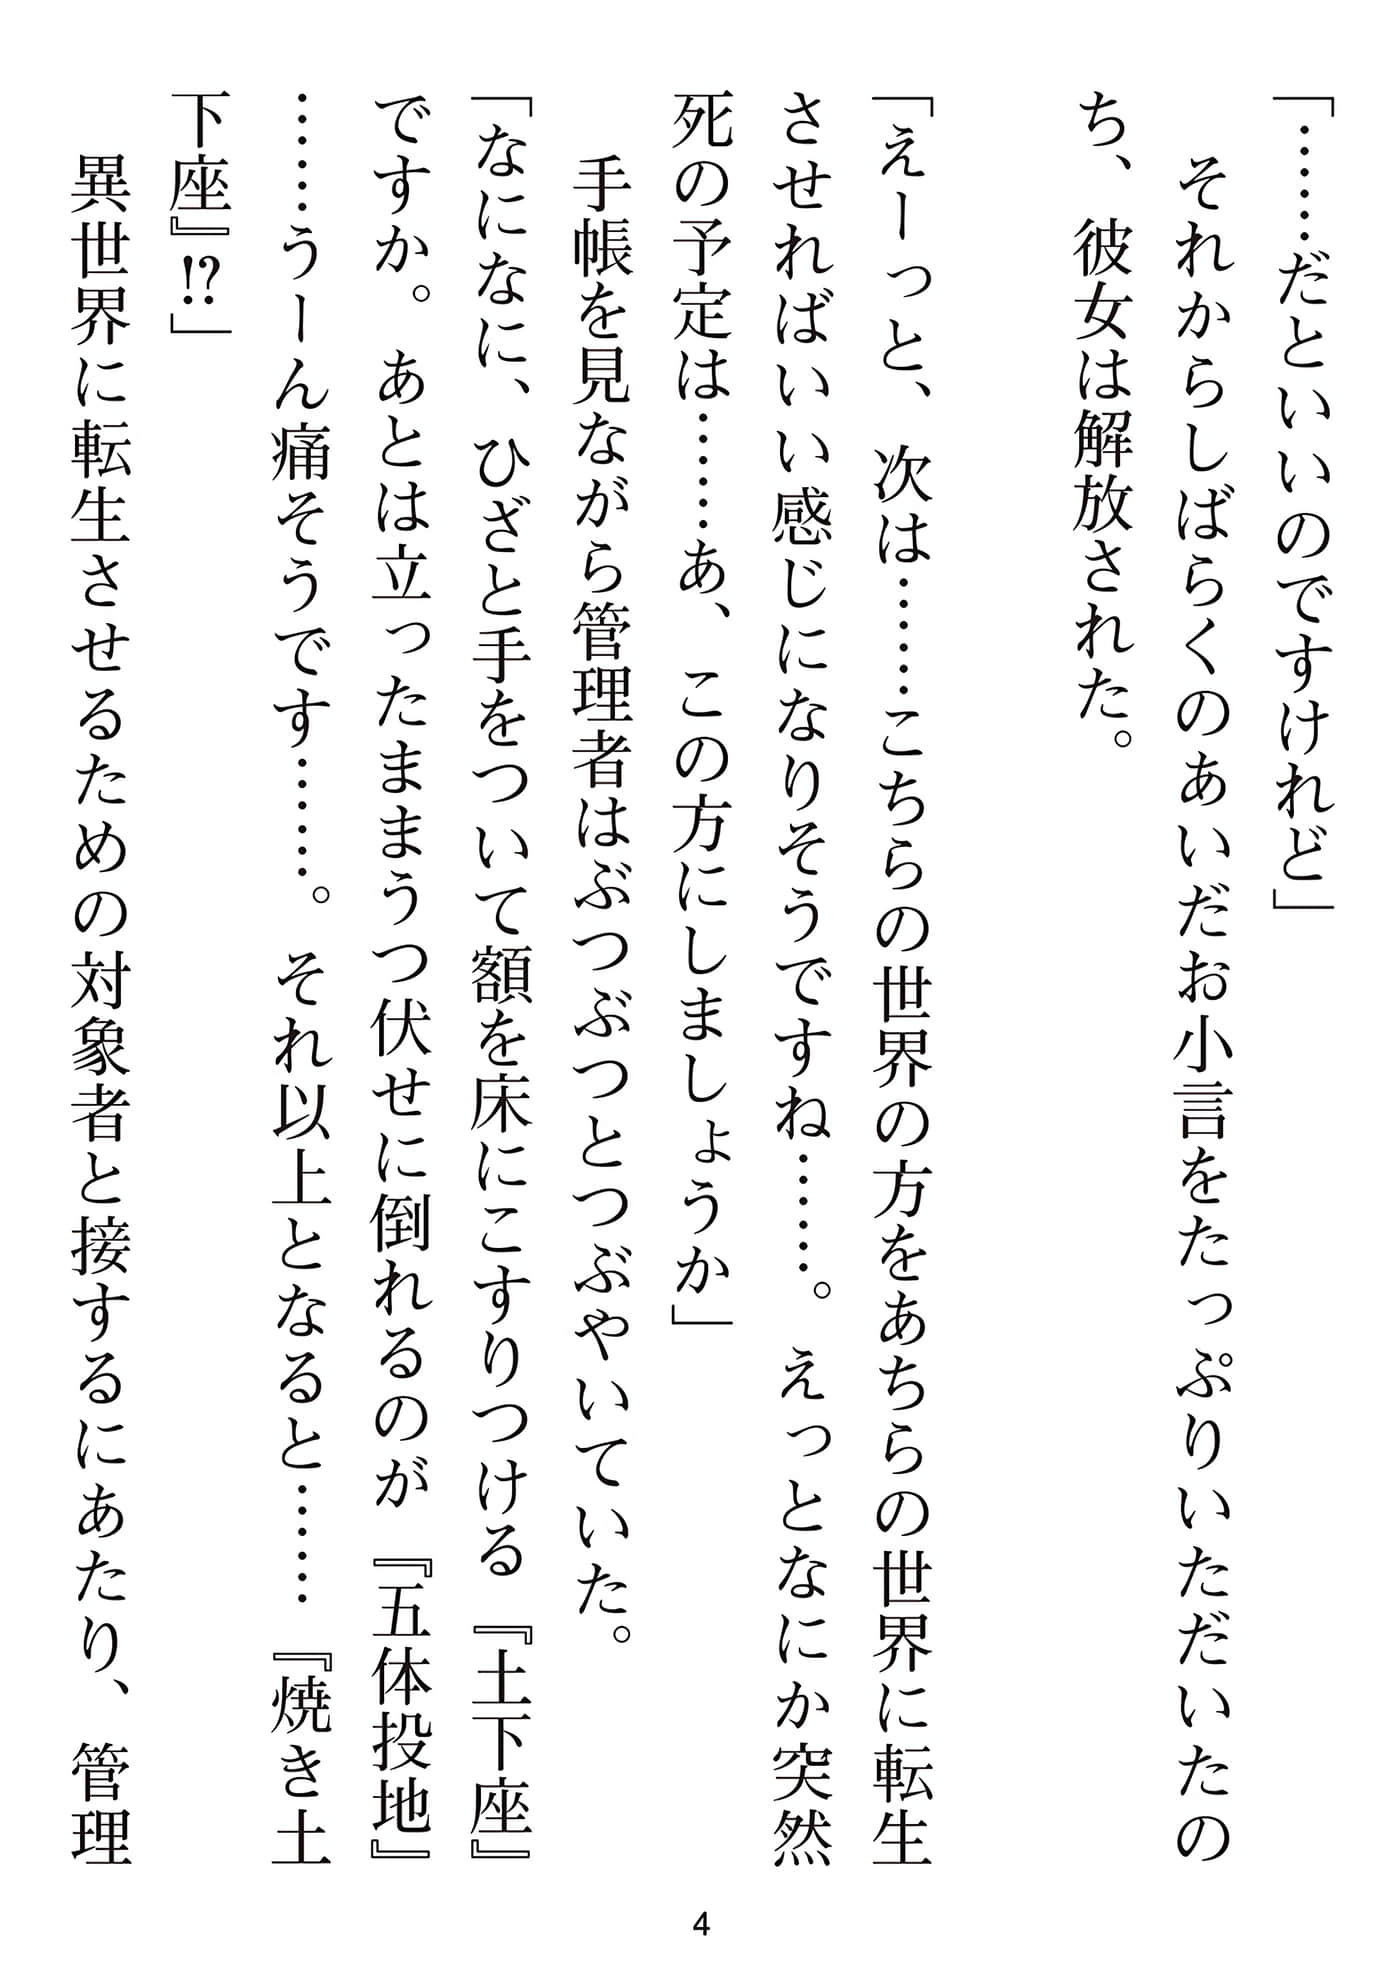 「……だといいのですけれど」
　それからしばらくのあいだお小言をたっぷりいただいたの
ち、彼女は解放された。
「えーっと、次は……こちらの世界の方をあちらの世界に転生
させればいい感じになりそうですね……。えっとなにか突然
死の予定は……あ、この方にしましょうか」
　手帳を見ながら管理者はぶつぶつとつぶやいていた。
「なになに、ひざと手をついて額を床にこすりつける『土下座』
ですか。あとは立ったままうつ伏せに倒れるのが『五体投地』
……うーん痛そうです……。それ以上となると……『焼き土
下座』!?」
　異世界に転生させるための対象者と接するにあたり、管理
4